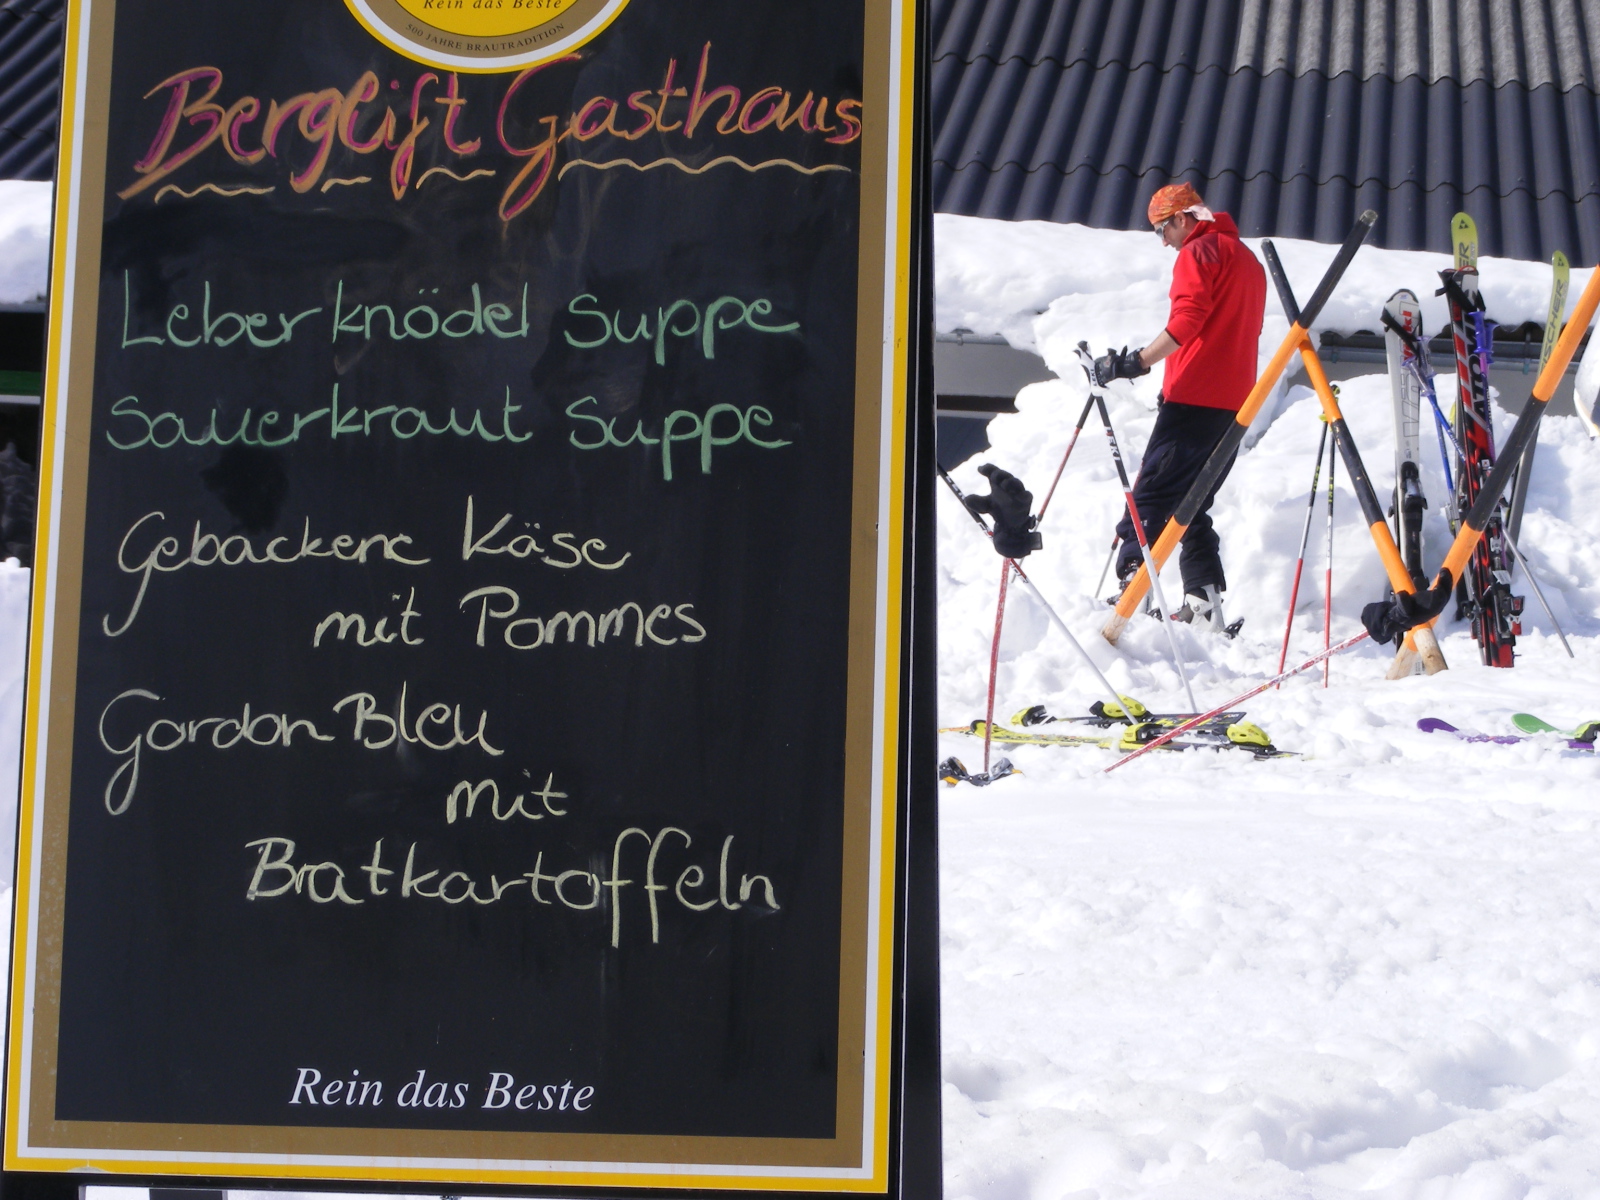 Rein das Beste
500 JAHRE BRAUTRADITION
Berglift Gasthaus
Leberknödel Suppe
Sauerkraut Suppe
Gebackene Käse
mit Pommes
Gordon Bleu
mit
Bratkartoffeln
Rein das Beste
FISCHER
LEKI